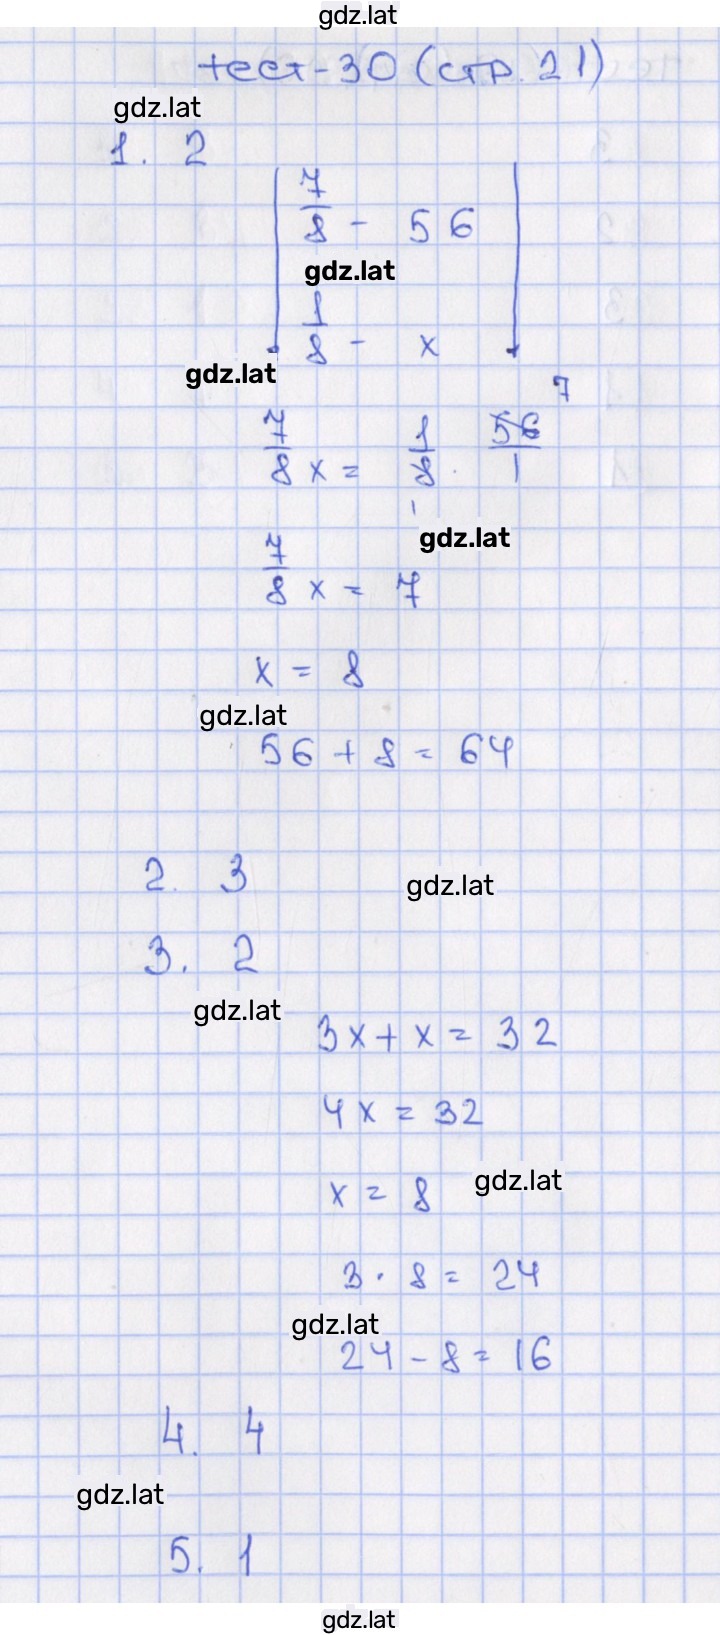 gdz.lat
тест-30 (стр. 21)
gdz.lat
1. 2
7/8 - 56
gdz.lat
1/8 - x
gdz.lat
7
7/8 x = 1/8 · 56/1
1
gdz.lat
7/8 x = 7
x = 8
gdz.lat
56 + 8 = 64
2. 3
gdz.lat
3. 2
gdz.lat
3x + x = 32
4x = 32
x = 8
gdz.lat
3 · 8 = 24
gdz.lat
24 - 8 = 16
4. 4
gdz.lat
5. 1
gdz.lat